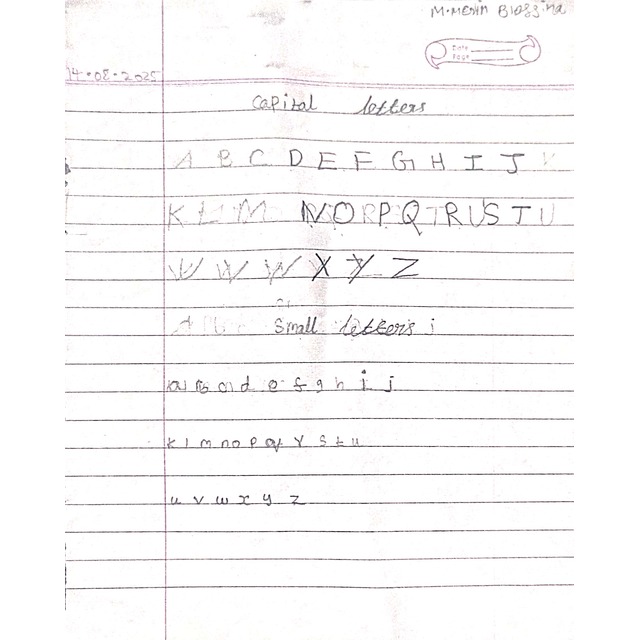 M.Merin Blossina
Date
Page
14.08.2025
Capital letters
A B C D E F G H I J
K L M N O P Q R S T U
V W X Y Z
Small letters
a b c d e f g h i j
k l m n o p q r s t u
u v w x y z